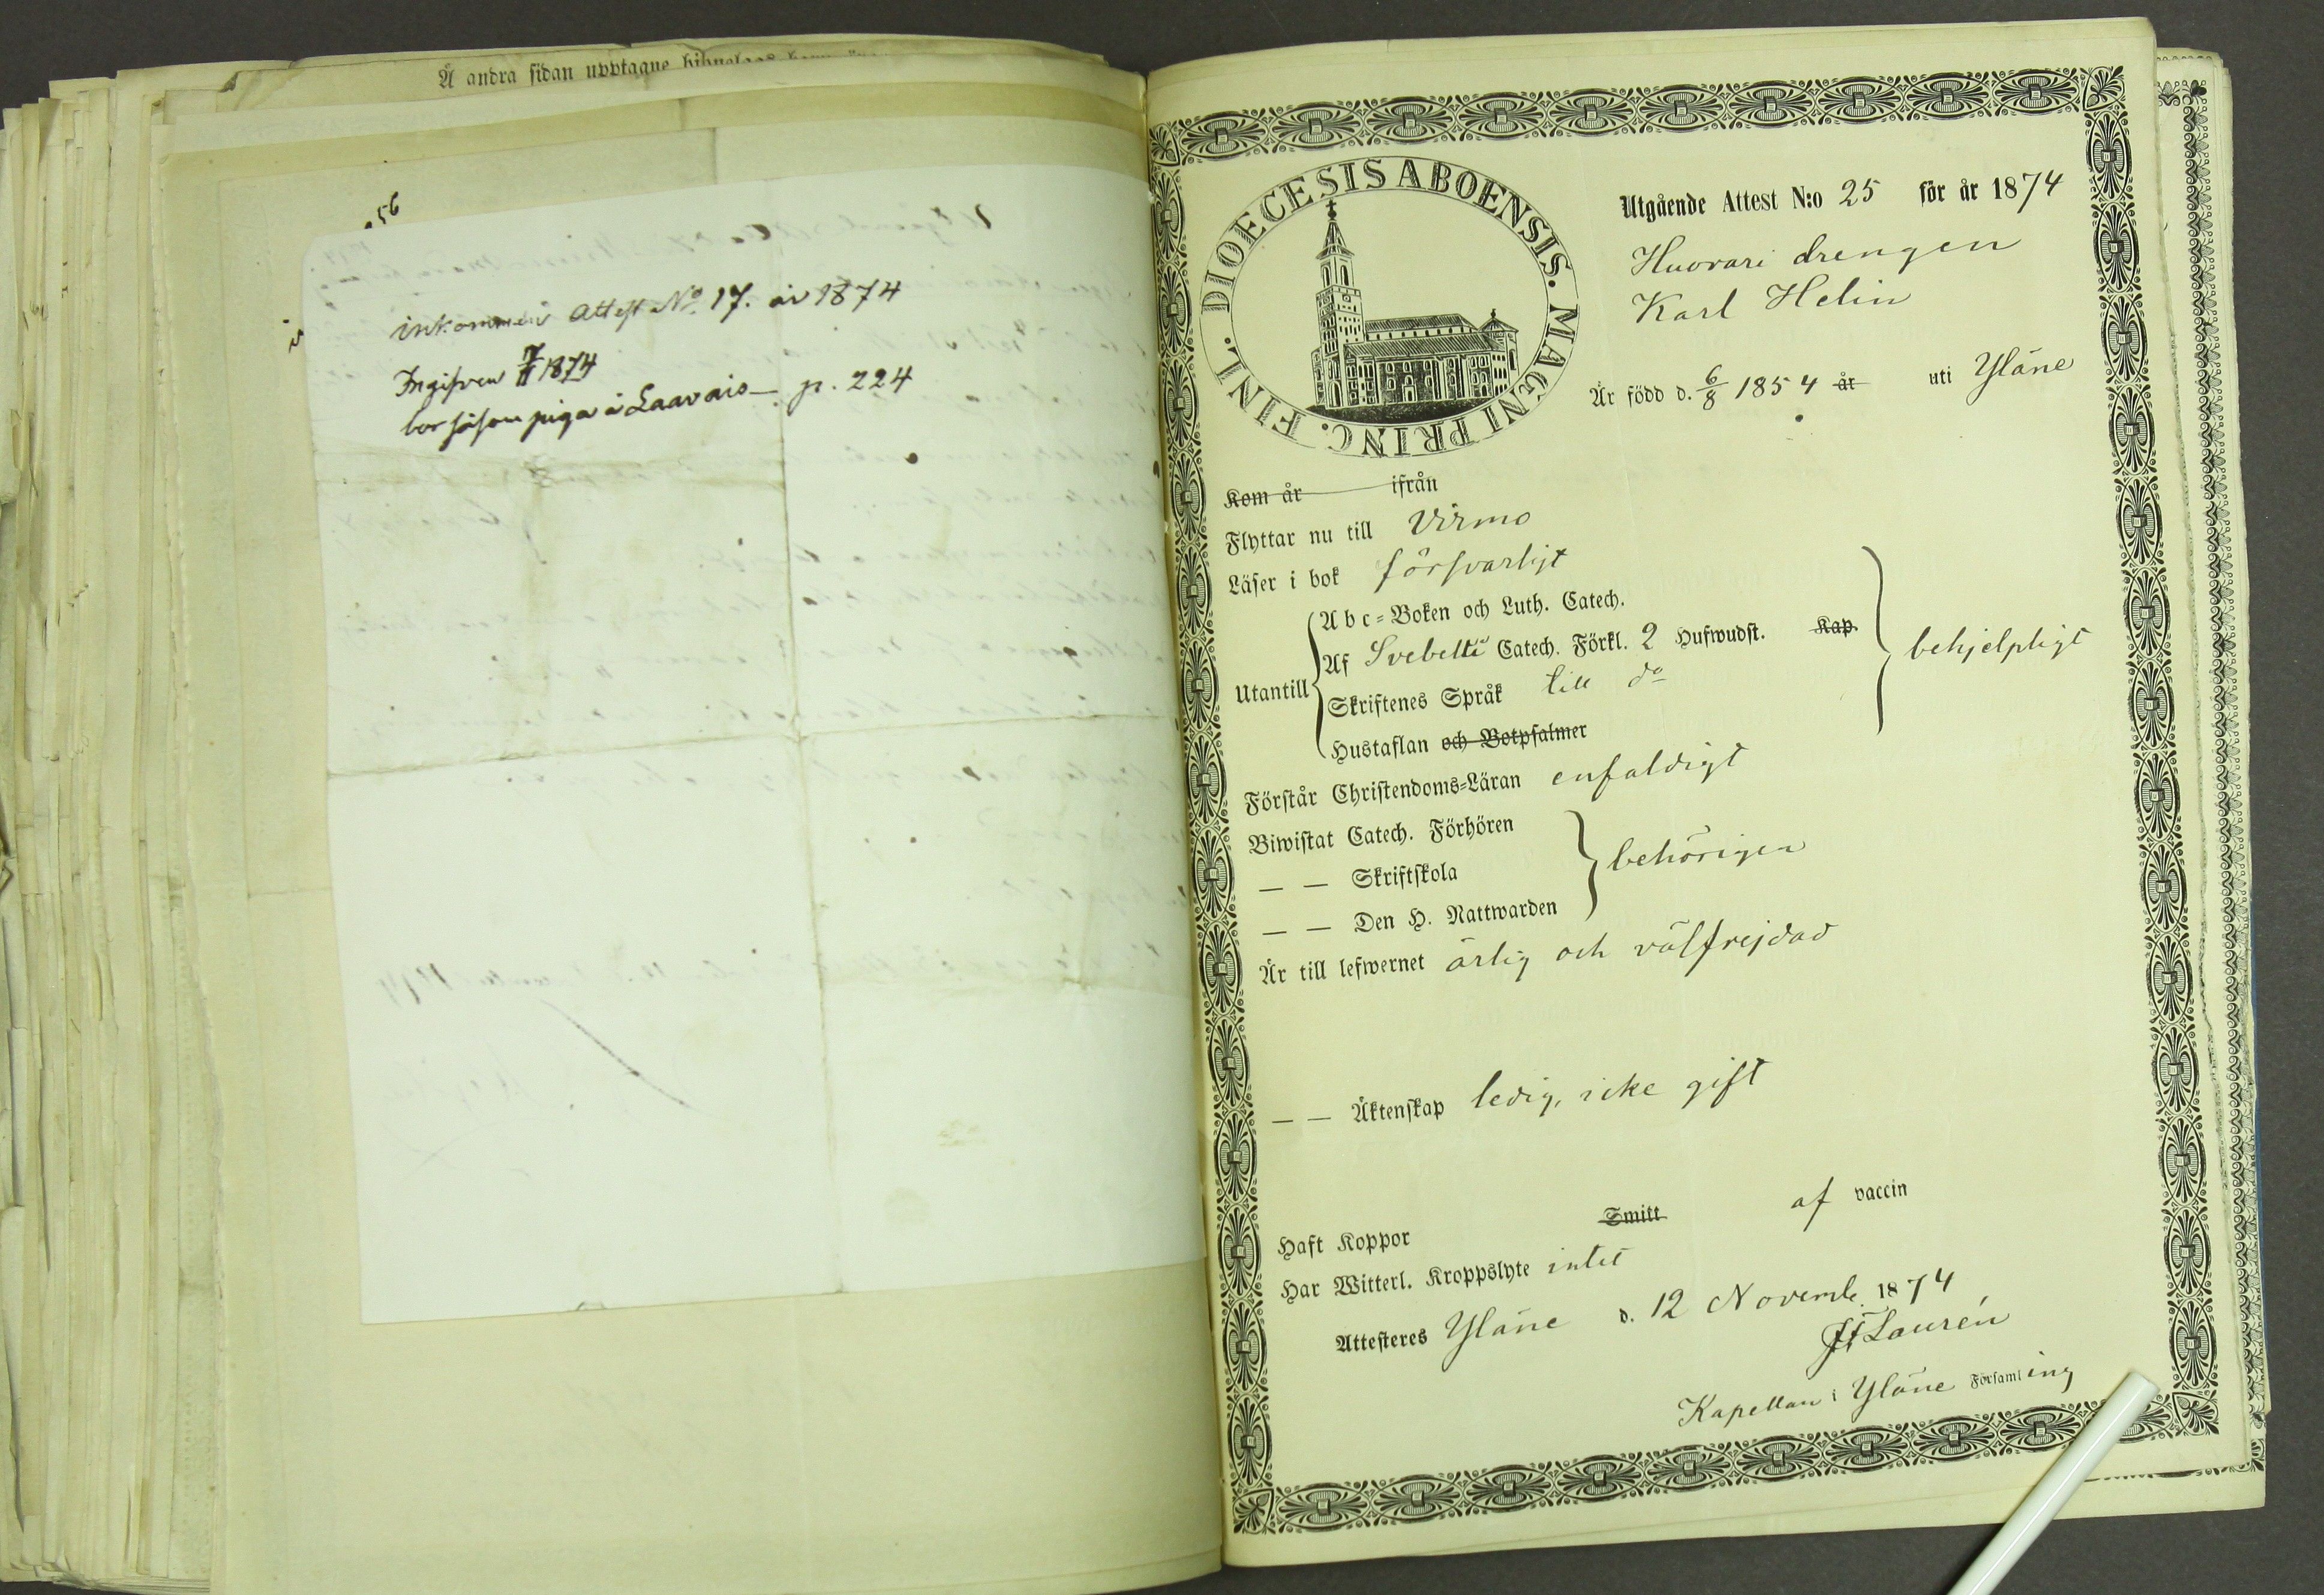 Å andra sidan upptagne
56
inkommen Attest No. 17. år 1874
Ingifven 7/11 1874
bor såsom piga å Laavais — p. 224
DIOECESIS ABOENSIS. MAGNI PRINC. FINL.
Utgående Attest N:o 25 för år 1874
Huovari drengen
Karl Helin
Är född d. 6/8 1854 år uti Yläne
Kom år ifrån
Flyttar nu till Virmo
Läser i bok försvarligt
Utantill
Abc-Boken och Luth. Catech.
Af Svebelii Catech. Förkl. 2 Hufwudst. Kap.
Skriftenes Språk till do
Hustaflan och Botpsalmer
behjelpligt
Förstår Christendoms-Läran enfaldigt
Biwistat Catech. Förhören
— — Skriftskola
— — Den H. Nattwarden
behörigen
Är till lefwernet ärlig och välfrejdad
— — Äktenskap ledig, icke gift
Haft Koppor Smitt af vaccin
Har Witterl. Kroppslyte intet
Attesteres Yläne d. 12 Novemb. 1874
Laurén
Kapellan i Yläne Församling